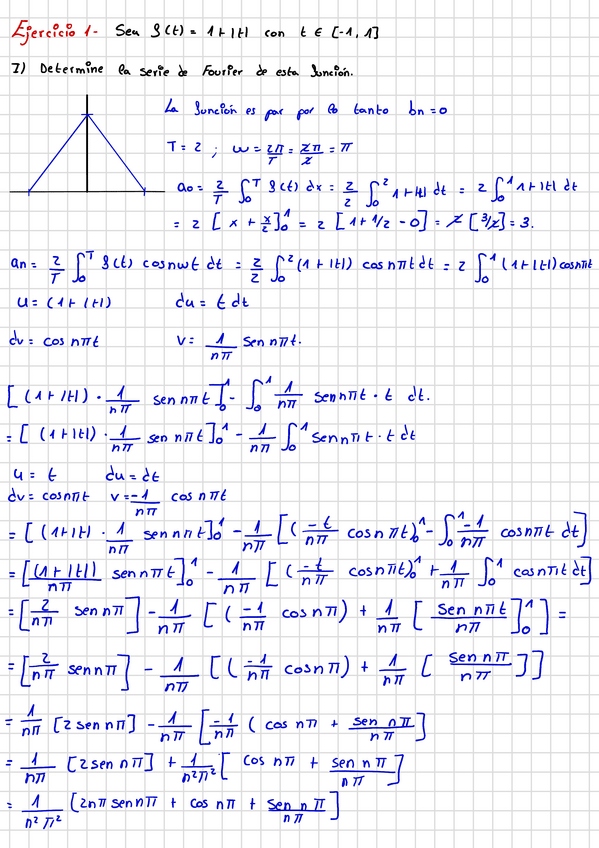 Ejercicio 1- Sea f(t) = 1+|t| con t ∈ [-1, 1]
I) Determine la serie de Fourier de esta función.
La función es par por lo tanto bn = 0
T = 2 ; ω = 2π/T = 2π/2 = π
ao = 2/T ∫₀ᵀ f(t) dx = 2/2 ∫₀² 1+|t| dt = 2 ∫₀¹ 1+|t| dt
= 2 [ x + x/2 ]₀¹ = 2 [ 1+1/2 - 0 ] = 2 [3/2] = 3.
an = 2/T ∫₀ᵀ f(t) cosnωt dt = 2/2 ∫₀² (1+|t|) cosnπt dt = 2 ∫₀¹ (1+|t|) cosnπt
u = (1+|t|) du = t dt
dv = cos nπt v = 1/nπ sen nπt.
[ (1+|t|) · 1/nπ sen nπt ]₀¹ - ∫₀¹ 1/nπ sen nπt · t dt.
= [ (1+|t|) · 1/nπ sen nπt ]₀¹ - 1/nπ ∫₀¹ sen nπt · t dt
u = t du = dt
dv = cosnπt v = -1/nπ cos nπt
= [ (1+|t| · 1/nπ sen nπt ]₀¹ - 1/nπ [ ( -t/nπ cos nπt )₀¹ - ∫₀¹ -1/nπ cosnπt dt ]
= [ (1+|t|)/nπ sen nπt ]₀¹ - 1/nπ [ ( -t/nπ cosnπt )₀¹ + 1/nπ ∫₀¹ cosnπt dt ]
= [ 2/nπ sen nπ ] - 1/nπ [ ( -1/nπ cos nπ ) + 1/nπ [ sen nπt/nπ ]₀¹ ] =
= [ 2/nπ sennπ ] - 1/nπ [ ( -1/nπ cosnπ ) + 1/nπ [ sen nπ/nπ ] ]
= 1/nπ [ 2 sen nπ ] - 1/nπ [ -1/nπ ( cos nπ + sen nπ/nπ ]
= 1/nπ [ 2 sen nπ ] + 1/n²π² [ cos nπ + sen nπ/nπ ]
= 1/n²π² [ 2nπ sennπ + cos nπ + sen nπ/nπ ]